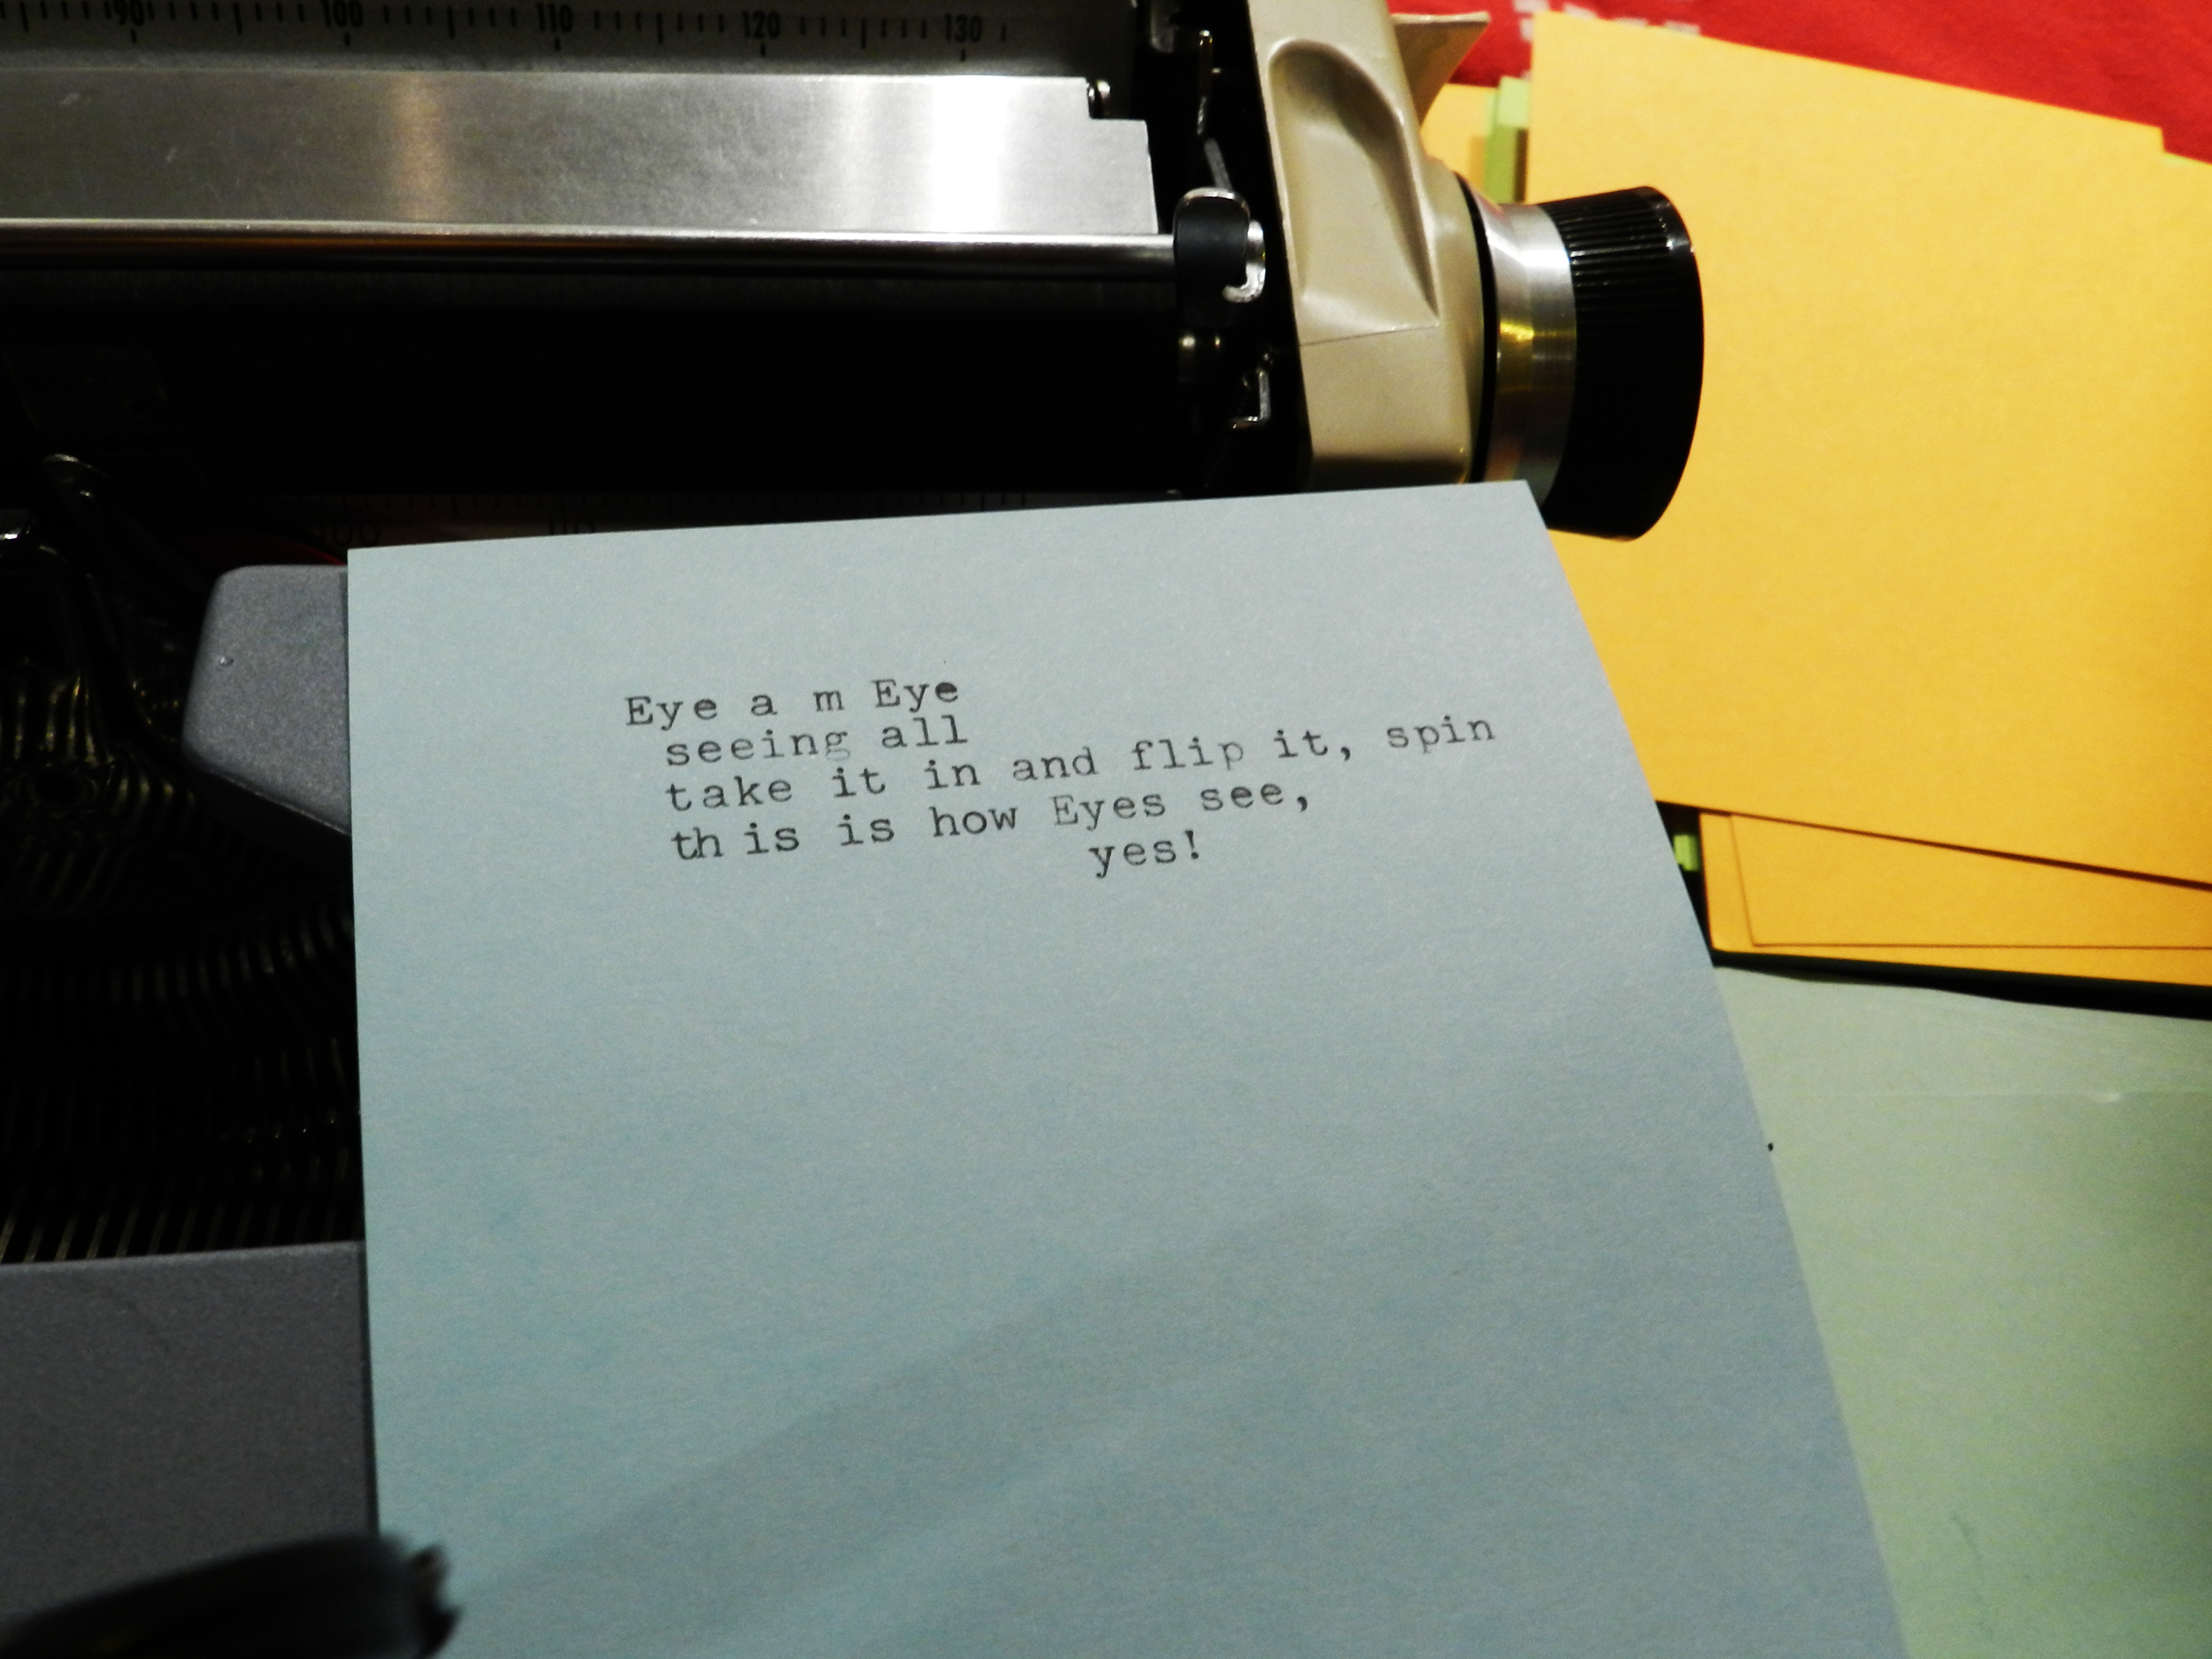 90 100 110 120 130
100 110
Eye a m Eye
seeing all
take it in and flip it, spin
th is is how Eyes see,
yes!